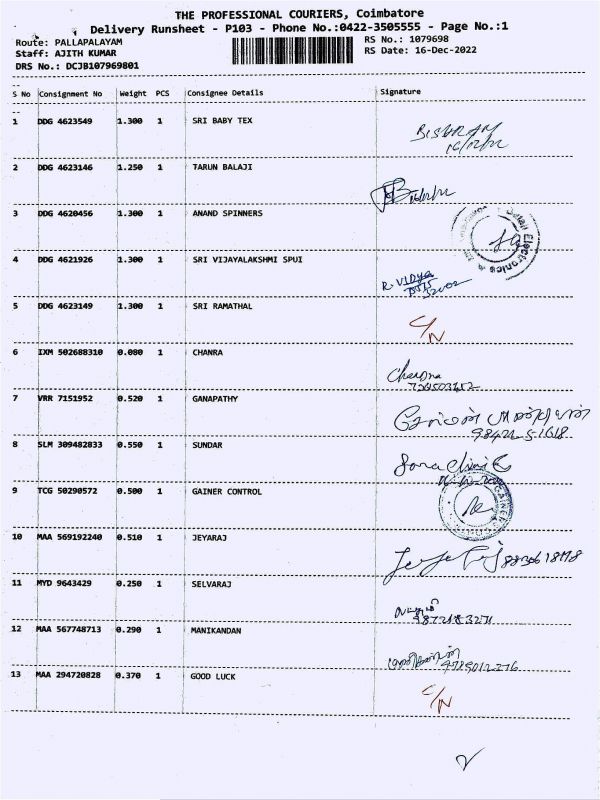 THE PROFESSIONAL COURIERS, Coimbatore
Delivery Runsheet - P103 - Phone No.:0422-3505555 - Page No.:1
Route: PALLAPALAYAM RS No.: 1079698
Staff: AJITH KUMAR RS Date: 16-Dec-2022
DRS No.: DCJB107969801
S No Consignment No Weight PCS Consignee Details Signature
1 DDG 4623549 1.300 1 SRI BABY TEX
16/12/22
2 DDG 4623146 1.250 1 TARUN BALAJI
16/12/22
3 DDG 4620456 1.300 1 ANAND SPINNERS
Electronics &
4 DDG 4621926 1.300 1 SRI VIJAYALAKSHMI SPUI
R. Vidya
5 DDG 4623149 1.300 1 SRI RAMATHAL
C/N
6 IXM 502688310 0.080 1 CHANRA
7 VRR 7151952 0.520 1 GANAPATHY
8 SLM 309482833 0.550 1 SUNDAR
9 TCG 50290572 0.500 1 GAINER CONTROL
10 MAA 569192240 0.510 1 JEYARAJ
11 MYD 9643429 0.250 1 SELVARAJ
12 MAA 567748713 0.290 1 MANIKANDAN
13 MAA 294720828 0.370 1 GOOD LUCK
C/N